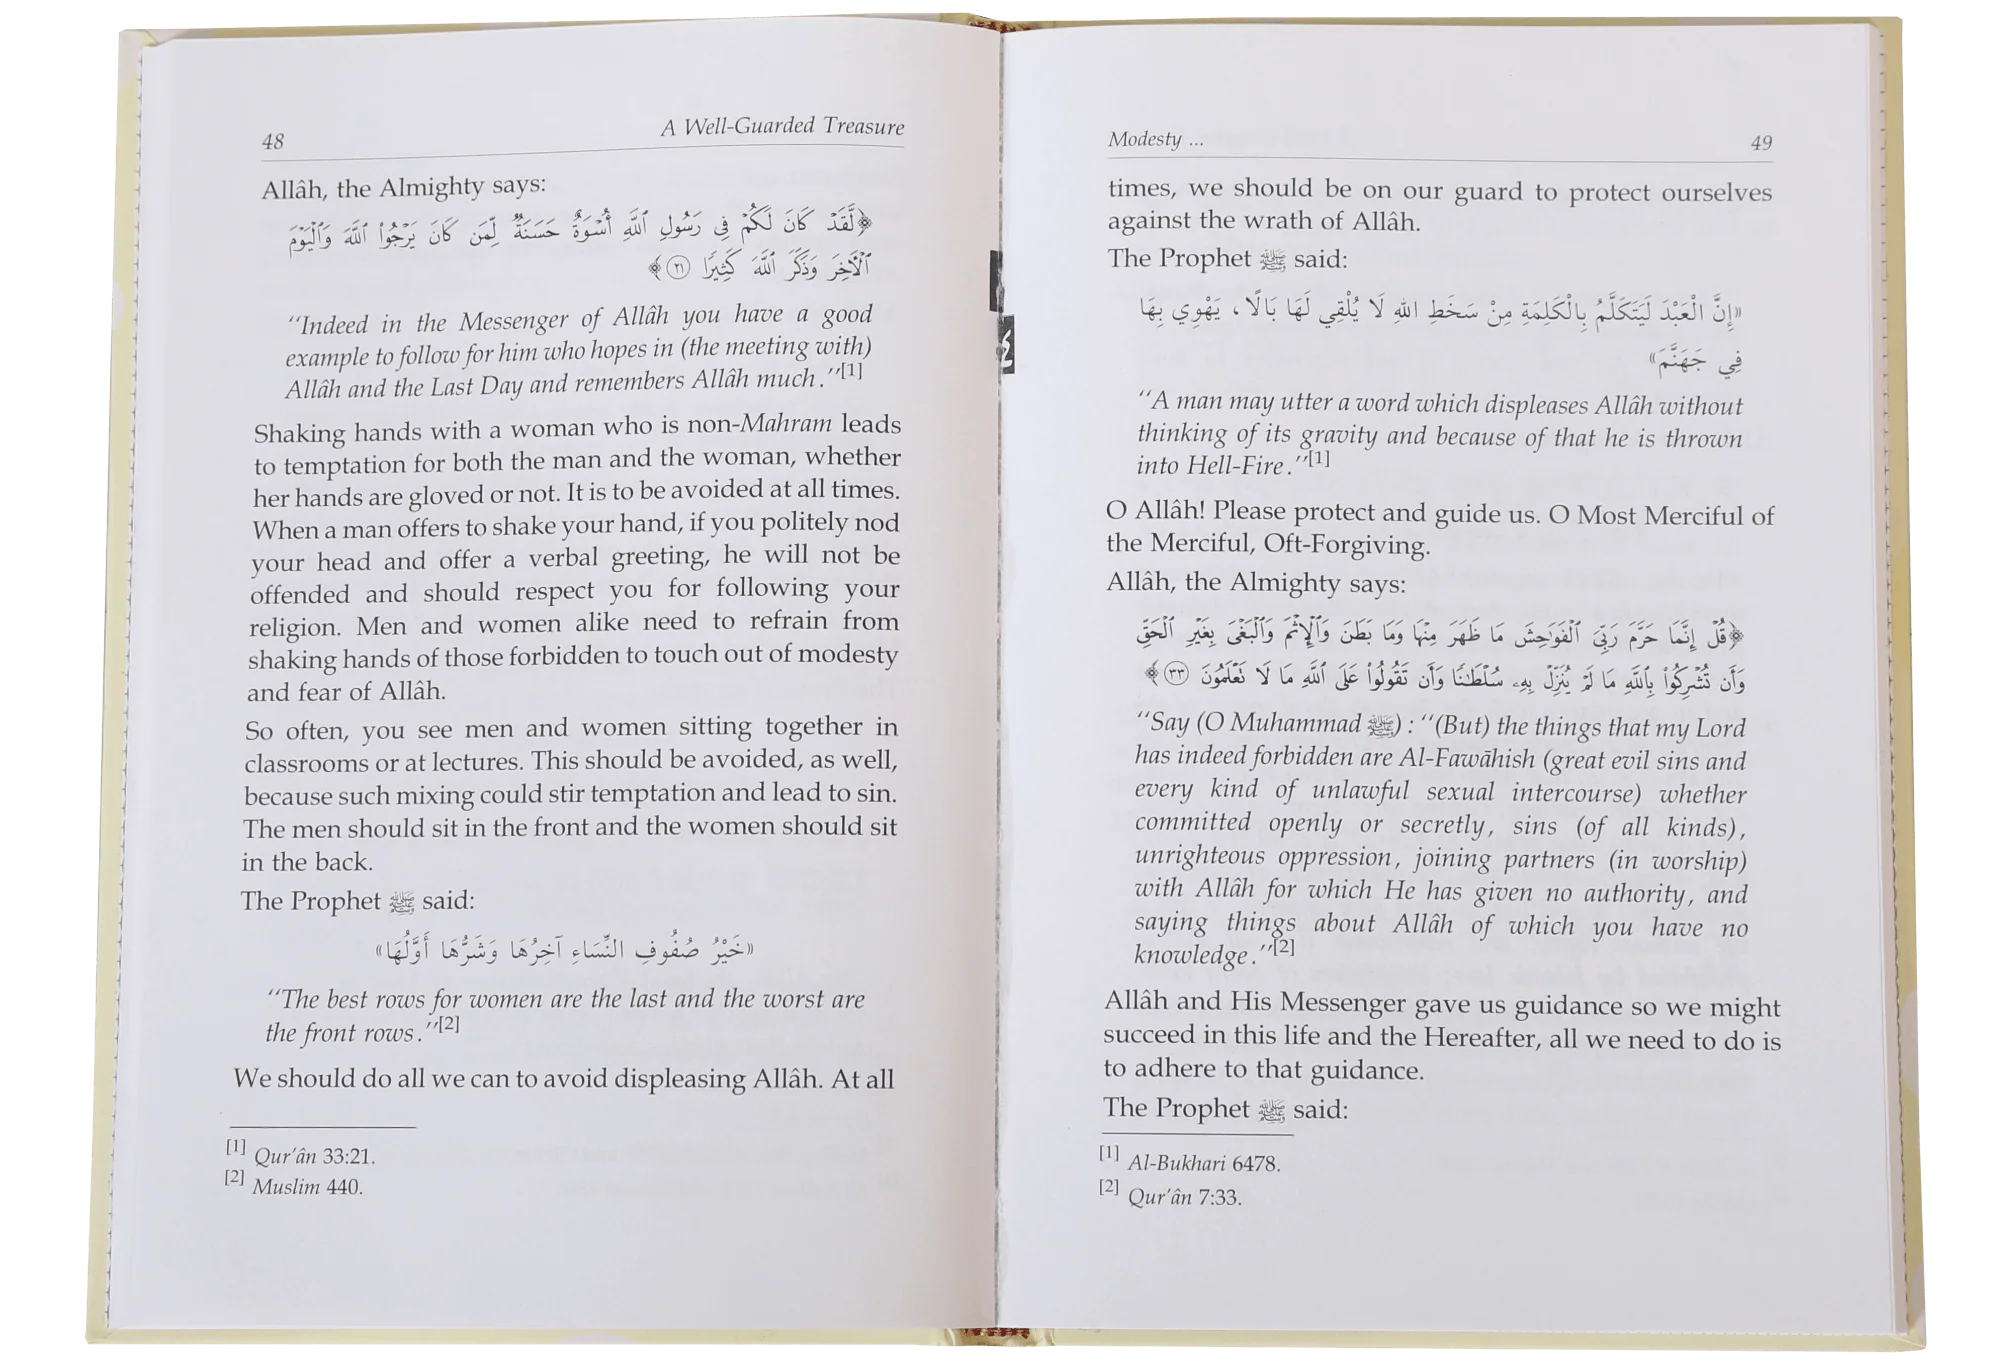 48
A Well-Guarded Treasure
Allâh, the Almighty says:
﴿لَّقَدْ كَانَ لَكُمْ فِي رَسُولِ ٱللَّهِ أُسْوَةٌ حَسَنَةٌ لِّمَن كَانَ يَرْجُوا۟ ٱللَّهَ وَٱلْيَوْمَ
ٱلْـَٔاخِرَ وَذَكَرَ ٱللَّهَ كَثِيرًا ٢١﴾
''Indeed in the Messenger of Allâh you have a good
example to follow for him who hopes in (the meeting with)
Allâh and the Last Day and remembers Allâh much.''[1]
Shaking hands with a woman who is non-Mahram leads
to temptation for both the man and the woman, whether
her hands are gloved or not. It is to be avoided at all times.
When a man offers to shake your hand, if you politely nod
your head and offer a verbal greeting, he will not be
offended and should respect you for following your
religion. Men and women alike need to refrain from
shaking hands of those forbidden to touch out of modesty
and fear of Allâh.
So often, you see men and women sitting together in
classrooms or at lectures. This should be avoided, as well,
because such mixing could stir temptation and lead to sin.
The men should sit in the front and the women should sit
in the back.
The Prophet ﷺ said:
«خَيْرُ صُفُوفِ النِّسَاءِ آخِرُهَا وَشَرُّهَا أَوَّلُهَا»
''The best rows for women are the last and the worst are
the front rows.''[2]
We should do all we can to avoid displeasing Allâh. At all
[1] Qur'ân 33:21.
[2] Muslim 440.
Modesty ...
49
times, we should be on our guard to protect ourselves
against the wrath of Allâh.
The Prophet ﷺ said:
«إِنَّ الْعَبْدَ لَيَتَكَلَّمُ بِالْكَلِمَةِ مِنْ سَخَطِ اللهِ لَا يُلْقِي لَهَا بَالًا، يَهْوِي بِهَا
فِي جَهَنَّمَ»
''A man may utter a word which displeases Allâh without
thinking of its gravity and because of that he is thrown
into Hell-Fire.''[1]
O Allâh! Please protect and guide us. O Most Merciful of
the Merciful, Oft-Forgiving.
Allâh, the Almighty says:
﴿قُلْ إِنَّمَا حَرَّمَ رَبِّيَ ٱلْفَوَٰحِشَ مَا ظَهَرَ مِنْهَا وَمَا بَطَنَ وَٱلْإِثْمَ وَٱلْبَغْىَ بِغَيْرِ ٱلْحَقِّ
وَأَن تُشْرِكُوا۟ بِٱللَّهِ مَا لَمْ يُنَزِّلْ بِهِۦ سُلْطَٰنًا وَأَن تَقُولُوا۟ عَلَى ٱللَّهِ مَا لَا تَعْلَمُونَ ٣٣﴾
''Say (O Muhammad ﷺ) : ''(But) the things that my Lord
has indeed forbidden are Al-Fawāhish (great evil sins and
every kind of unlawful sexual intercourse) whether
committed openly or secretly, sins (of all kinds),
unrighteous oppression, joining partners (in worship)
with Allâh for which He has given no authority, and
saying things about Allâh of which you have no
knowledge.''[2]
Allâh and His Messenger gave us guidance so we might
succeed in this life and the Hereafter, all we need to do is
to adhere to that guidance.
The Prophet ﷺ said:
[1] Al-Bukhari 6478.
[2] Qur'ân 7:33.